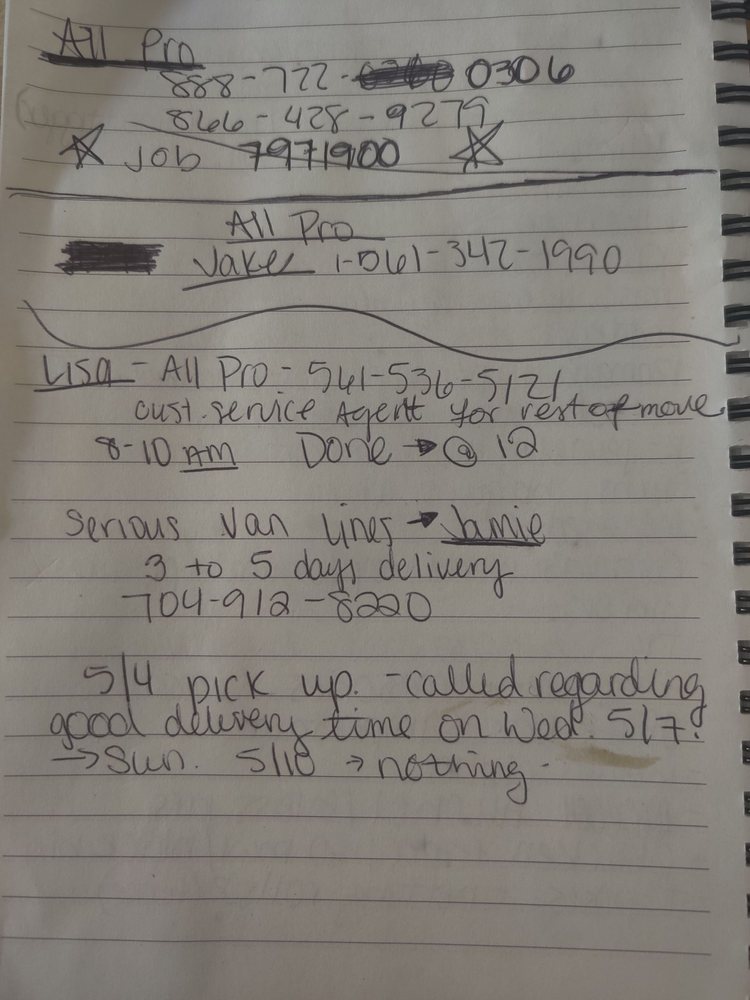 All Pro
888-722- 0306
866-428-9279
Job 7971900
All Pro
Jake 1-561-342-1990
Lisa - All Pro - 541-536-5121
cust. service Agent for rest of move
8-10 AM Done → @ 12
Serious Van Lines → Jamie
3 to 5 days delivery
704-912-8220
5/4 pick up. - called regarding
good delivery time on Wed. 5/7?
→ Sun. 5/10 → nothing -